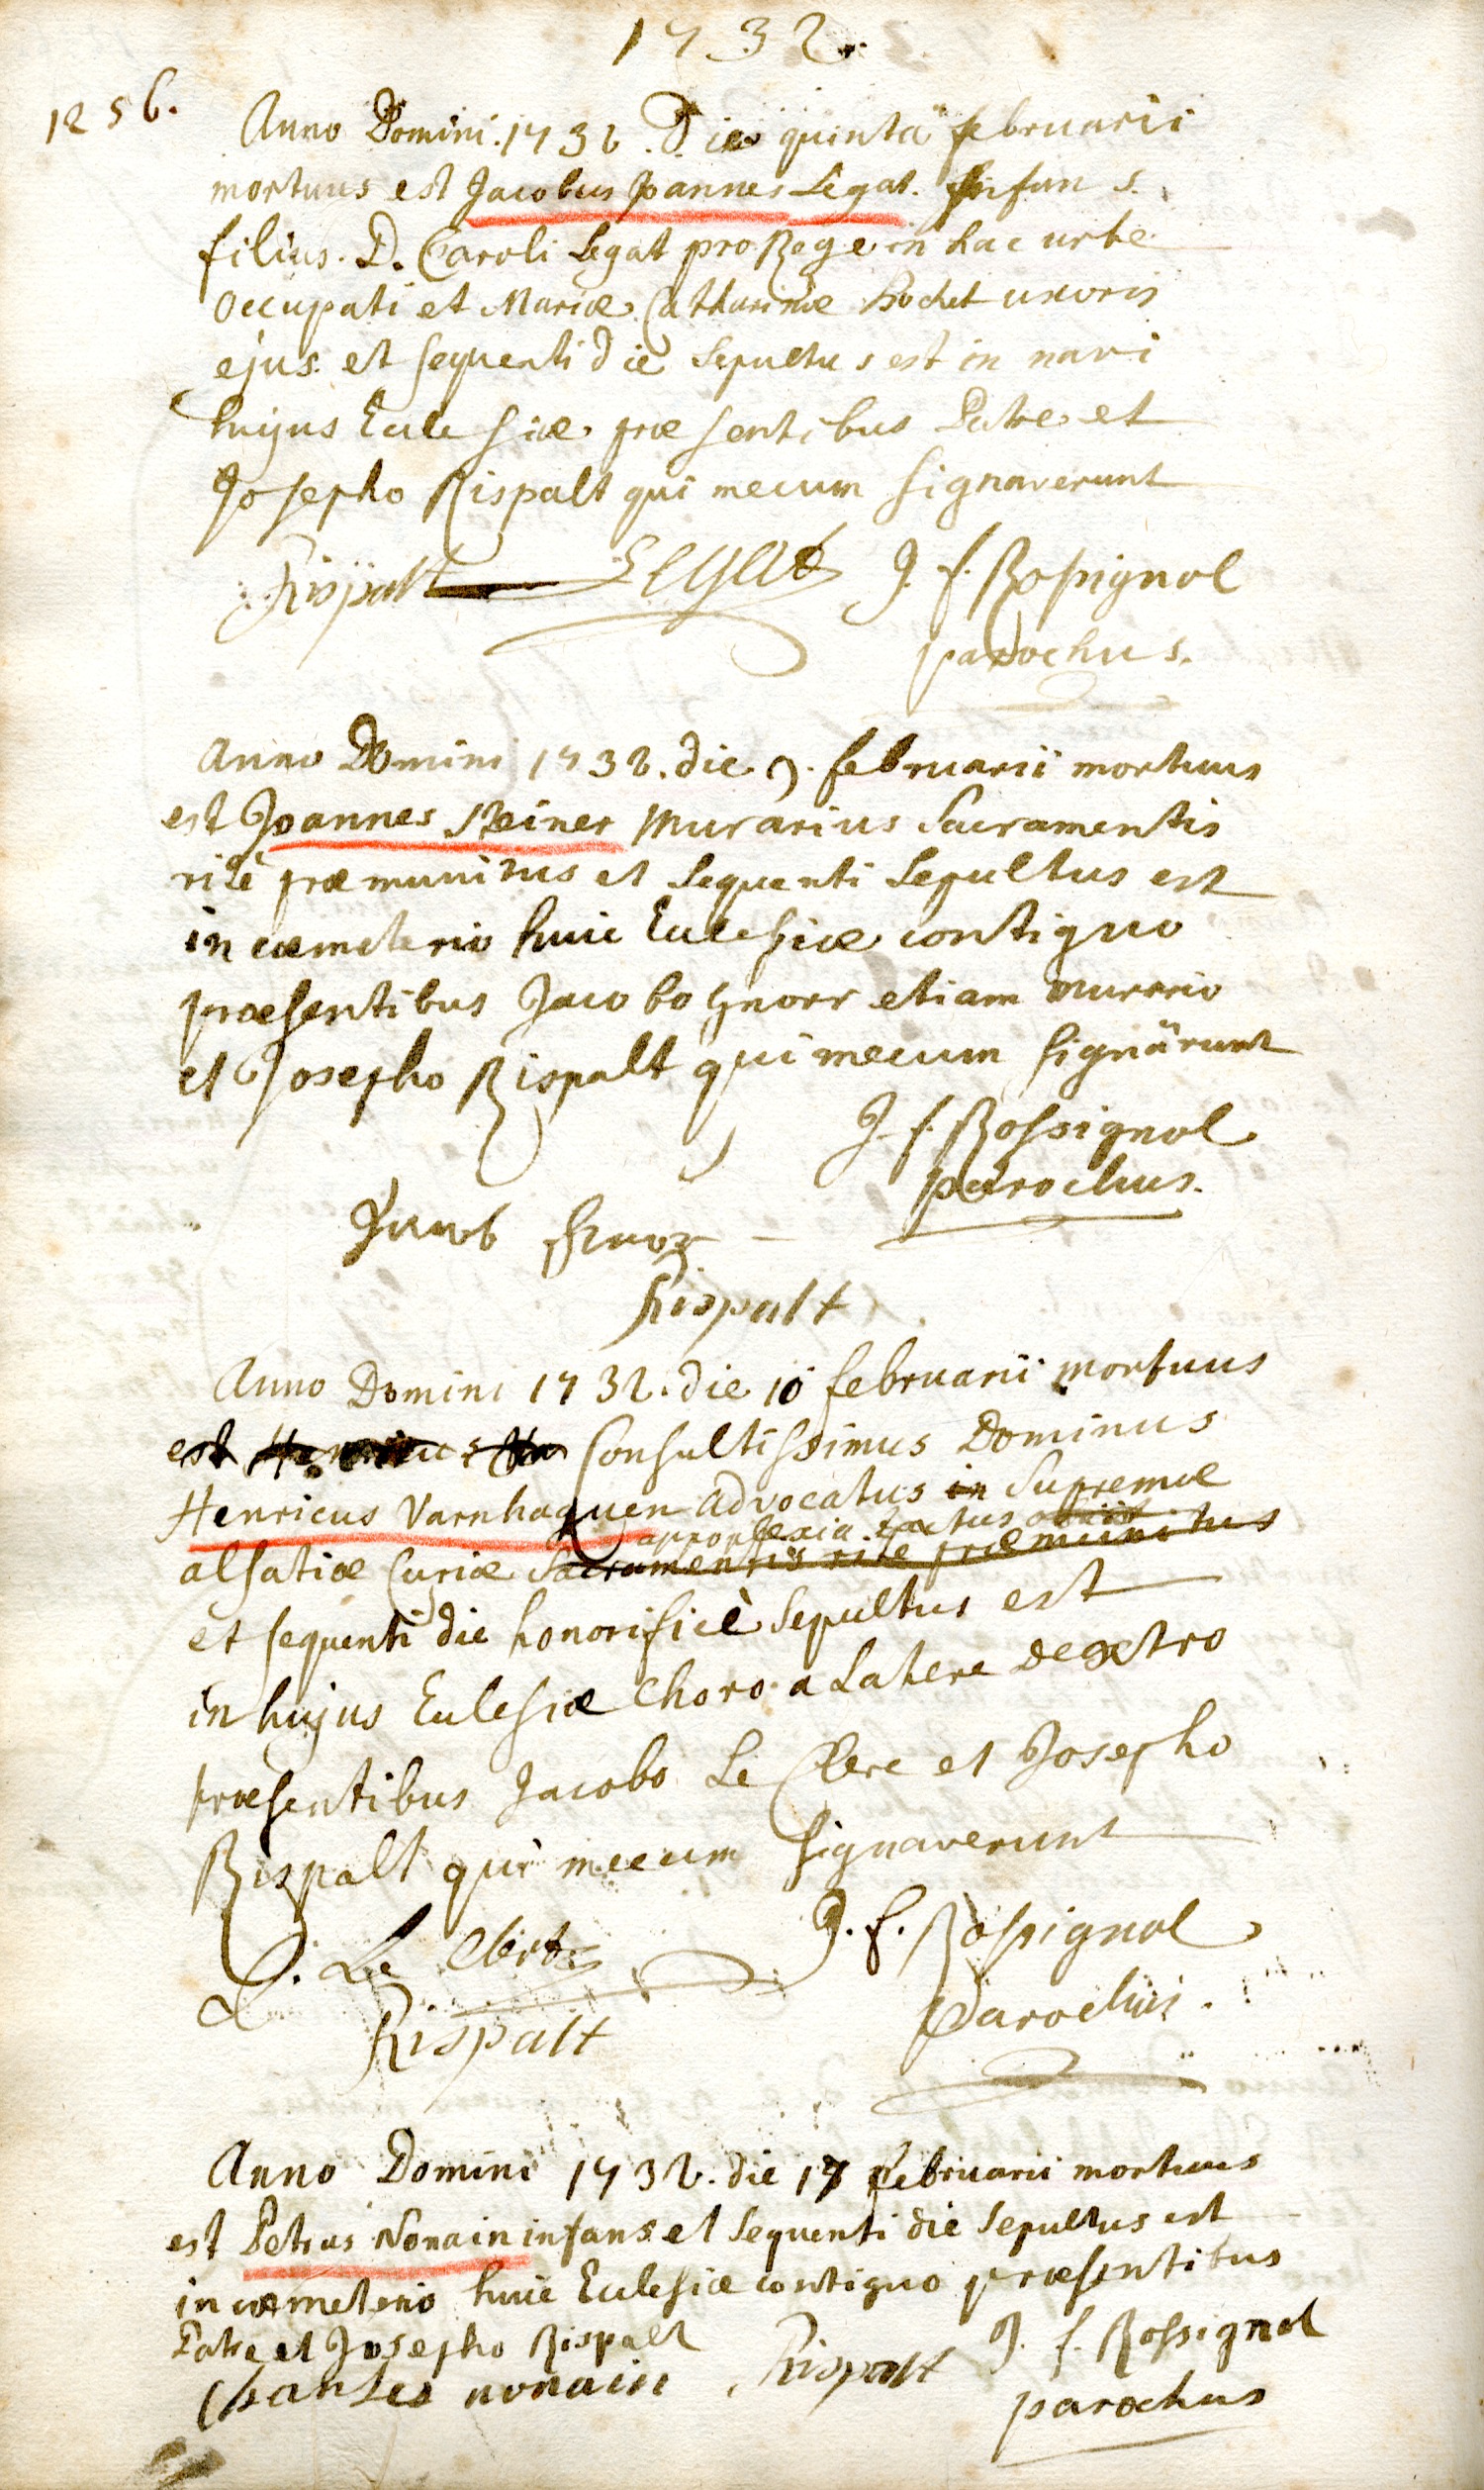 1732.
1256.
Anno Domini. 1732. Die quinta februarii
mortuus est Jacobus Joannes Legat. infans.
filius. D. Caroli Legat pro Rege in hac urbe
occupati et Mariæ Catharinæ Hochet uxoris
ejus. et sequenti die Sepultus est in navi
hujus Ecclesiæ præsentibus Patre et
Josepho Rispalt qui mecum signaverunt
Rispalt Legat J. f. Rossignol
parochus.
Anno Domini 1732. die 9. februarii mortuus
est Joannes Steiner Murarius Sacramentis
ritè præmunitus et sequenti Sepultus est
in cæmeterio huic Ecclesiæ contiguo
præsentibus Jacobo Gnorr etiam Murario
et Josepho Rispalt qui mecum signârunt
J. f. Rossignol
parochus.
Jacob
Rispalt
Anno Domini 1732. die 10 februarii mortuus
est Consultissimus Dominus
Henricus Varnhaguen advocatus in Supremæ
apporlexia tactus obiit
alsatiæ Curiæ Sacramentis rite præmunitus
et sequenti die honorificè Sepultus est
in hujus Ecclesiæ Choro a Latere Dextro
præsentibus Jacobo Le Clerc et Josepho
Rispalt qui mecum signaverunt
J. f. Rossignol
J. Le Clerc
Rispalt Parochus.
Anno Domini 1732. die 17 februarii mortuus
est Petrus Nonain infans et sequenti die Sepultus est
in cæmeterio huic Ecclesiæ contiguo præsentibus
Patre et Josepho Rispalt J. f. Rossignol
Charles nonain Rispalt
parochus